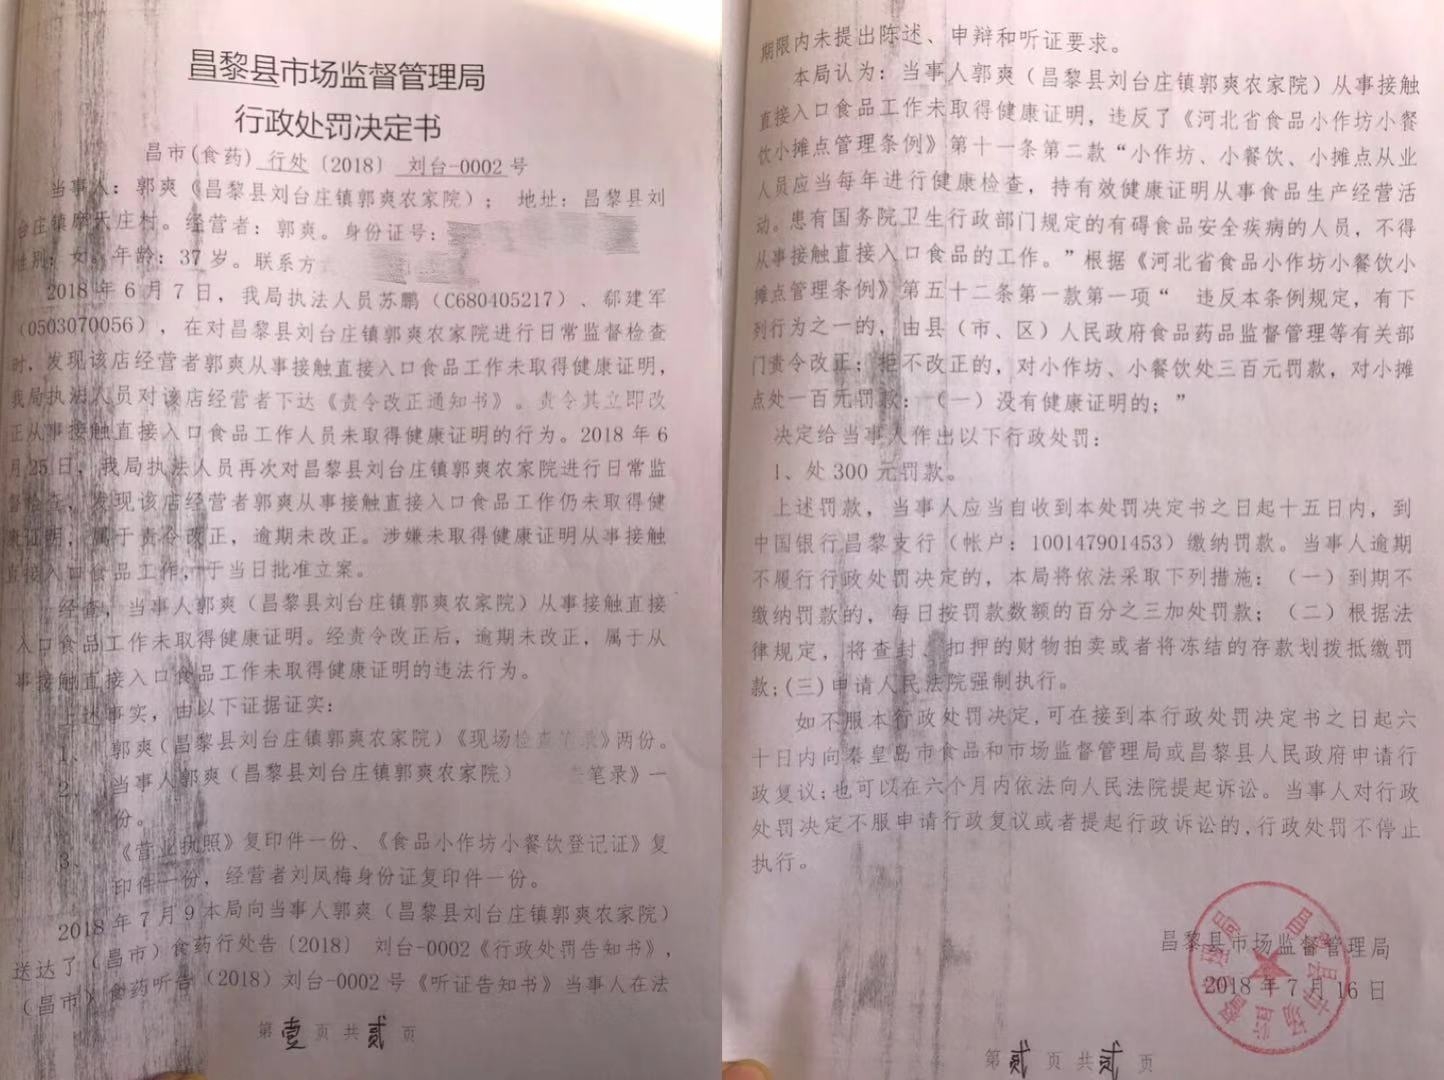 昌黎县市场监督管理局
行政处罚决定书
昌市(食药) 行处〔2018〕 刘台-0002 号
当事人：郭爽（昌黎县刘台庄镇郭爽农家院）； 地址：昌黎县刘
台庄镇摩天庄村。经营者：郭爽。身份证号：
性别：女。年龄：37 岁。联系方
2018 年 6 月 7 日，我局执法人员苏鹏（C680405217）、郗建军
（0503070056），在对昌黎县刘台庄镇郭爽农家院进行日常监督检查
时，发现该店经营者郭爽从事接触直接入口食品工作未取得健康证明，
我局执法人员对该店经营者下达《责令改正通知书》。责令其立即改
正从事接触直接入口食品工作人员未取得健康证明的行为。2018 年 6
月 25 日，我局执法人员再次对昌黎县刘台庄镇郭爽农家院进行日常监
督检查，发现该店经营者郭爽从事接触直接入口食品工作仍未取得健
康证明，属于责令改正，逾期未改正。涉嫌未取得健康证明从事接触
直接入口食品工作，于当日批准立案。
经查，当事人郭爽（昌黎县刘台庄镇郭爽农家院）从事接触直接
入口食品工作未取得健康证明。经责令改正后，逾期未改正，属于从
事接触直接入口食品工作未取得健康证明的违法行为。
上述事实，由以下证据证实：
1、 郭爽（昌黎县刘台庄镇郭爽农家院）《现场检查笔录》两份。
2、 当事人郭爽（昌黎县刘台庄镇郭爽农家院） 笔录》一
份。
3、 《营业执照》复印件一份、《食品小作坊小餐饮登记证》复
印件一份，经营者刘凤梅身份证复印件一份。
2018 年 7 月 9 本局向当事人郭爽（昌黎县刘台庄镇郭爽农家院）
送达了（昌市）食药行处告〔2018〕 刘台-0002《行政处罚告知书》，
（昌市）食药听告（2018）刘台-0002 号《听证告知书》当事人在法
第 壹 页 共 贰 页
期限内未提出陈述、申辩和听证要求。
本局认为：当事人郭爽（昌黎县刘台庄镇郭爽农家院）从事接触
直接入口食品工作未取得健康证明，违反了《河北省食品小作坊小餐
饮小摊点管理条例》第十一条第二款“小作坊、小餐饮、小摊点从业
人员应当每年进行健康检查，持有效健康证明从事食品生产经营活
动。患有国务院卫生行政部门规定的有碍食品安全疾病的人员，不得
从事接触直接入口食品的工作。”根据《河北省食品小作坊小餐饮小
摊点管理条例》第五十二条第一款第一项“ 违反本条例规定，有下
列行为之一的，由县（市、区）人民政府食品药品监督管理等有关部
门责令改正；拒不改正的，对小作坊、小餐饮处三百元罚款，对小摊
点处一百元罚款：（一）没有健康证明的；”
决定给当事人作出以下行政处罚：
1、处 300 元罚款。
上述罚款，当事人应当自收到本处罚决定书之日起十五日内，到
中国银行昌黎支行（帐户：100147901453）缴纳罚款。当事人逾期
不履行行政处罚决定的，本局将依法采取下列措施：（一）到期不
缴纳罚款的，每日按罚款数额的百分之三加处罚款；（二）根据法
律规定，将查封、扣押的财物拍卖或者将冻结的存款划拨抵缴罚
款；(三)申请人民法院强制执行。
如不服本行政处罚决定,可在接到本行政处罚决定书之日起六
十日内向秦皇岛市食品和市场监督管理局或昌黎县人民政府申请行
政复议;也可以在六个月内依法向人民法院提起诉讼。当事人对行政
处罚决定不服申请行政复议或者提起行政诉讼的,行政处罚不停止
执行。
昌黎县市场监督管理局
2018 年 7 月 16 日
昌黎县市场监督管理局
第 贰 页 共 贰 页